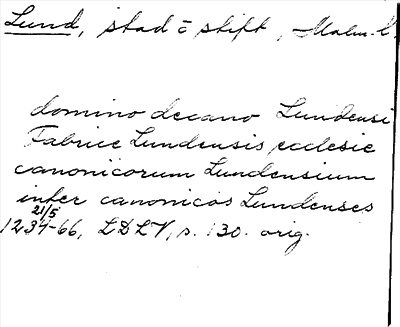 Lund, stad o stift, Malm. l.
domino decano Lundensi
Fabrice Lundensis ecclesie
canonicorum Lundensium
inter canonicos Lundenses
21/5
1234-66, LDLV, s. 130. orig.